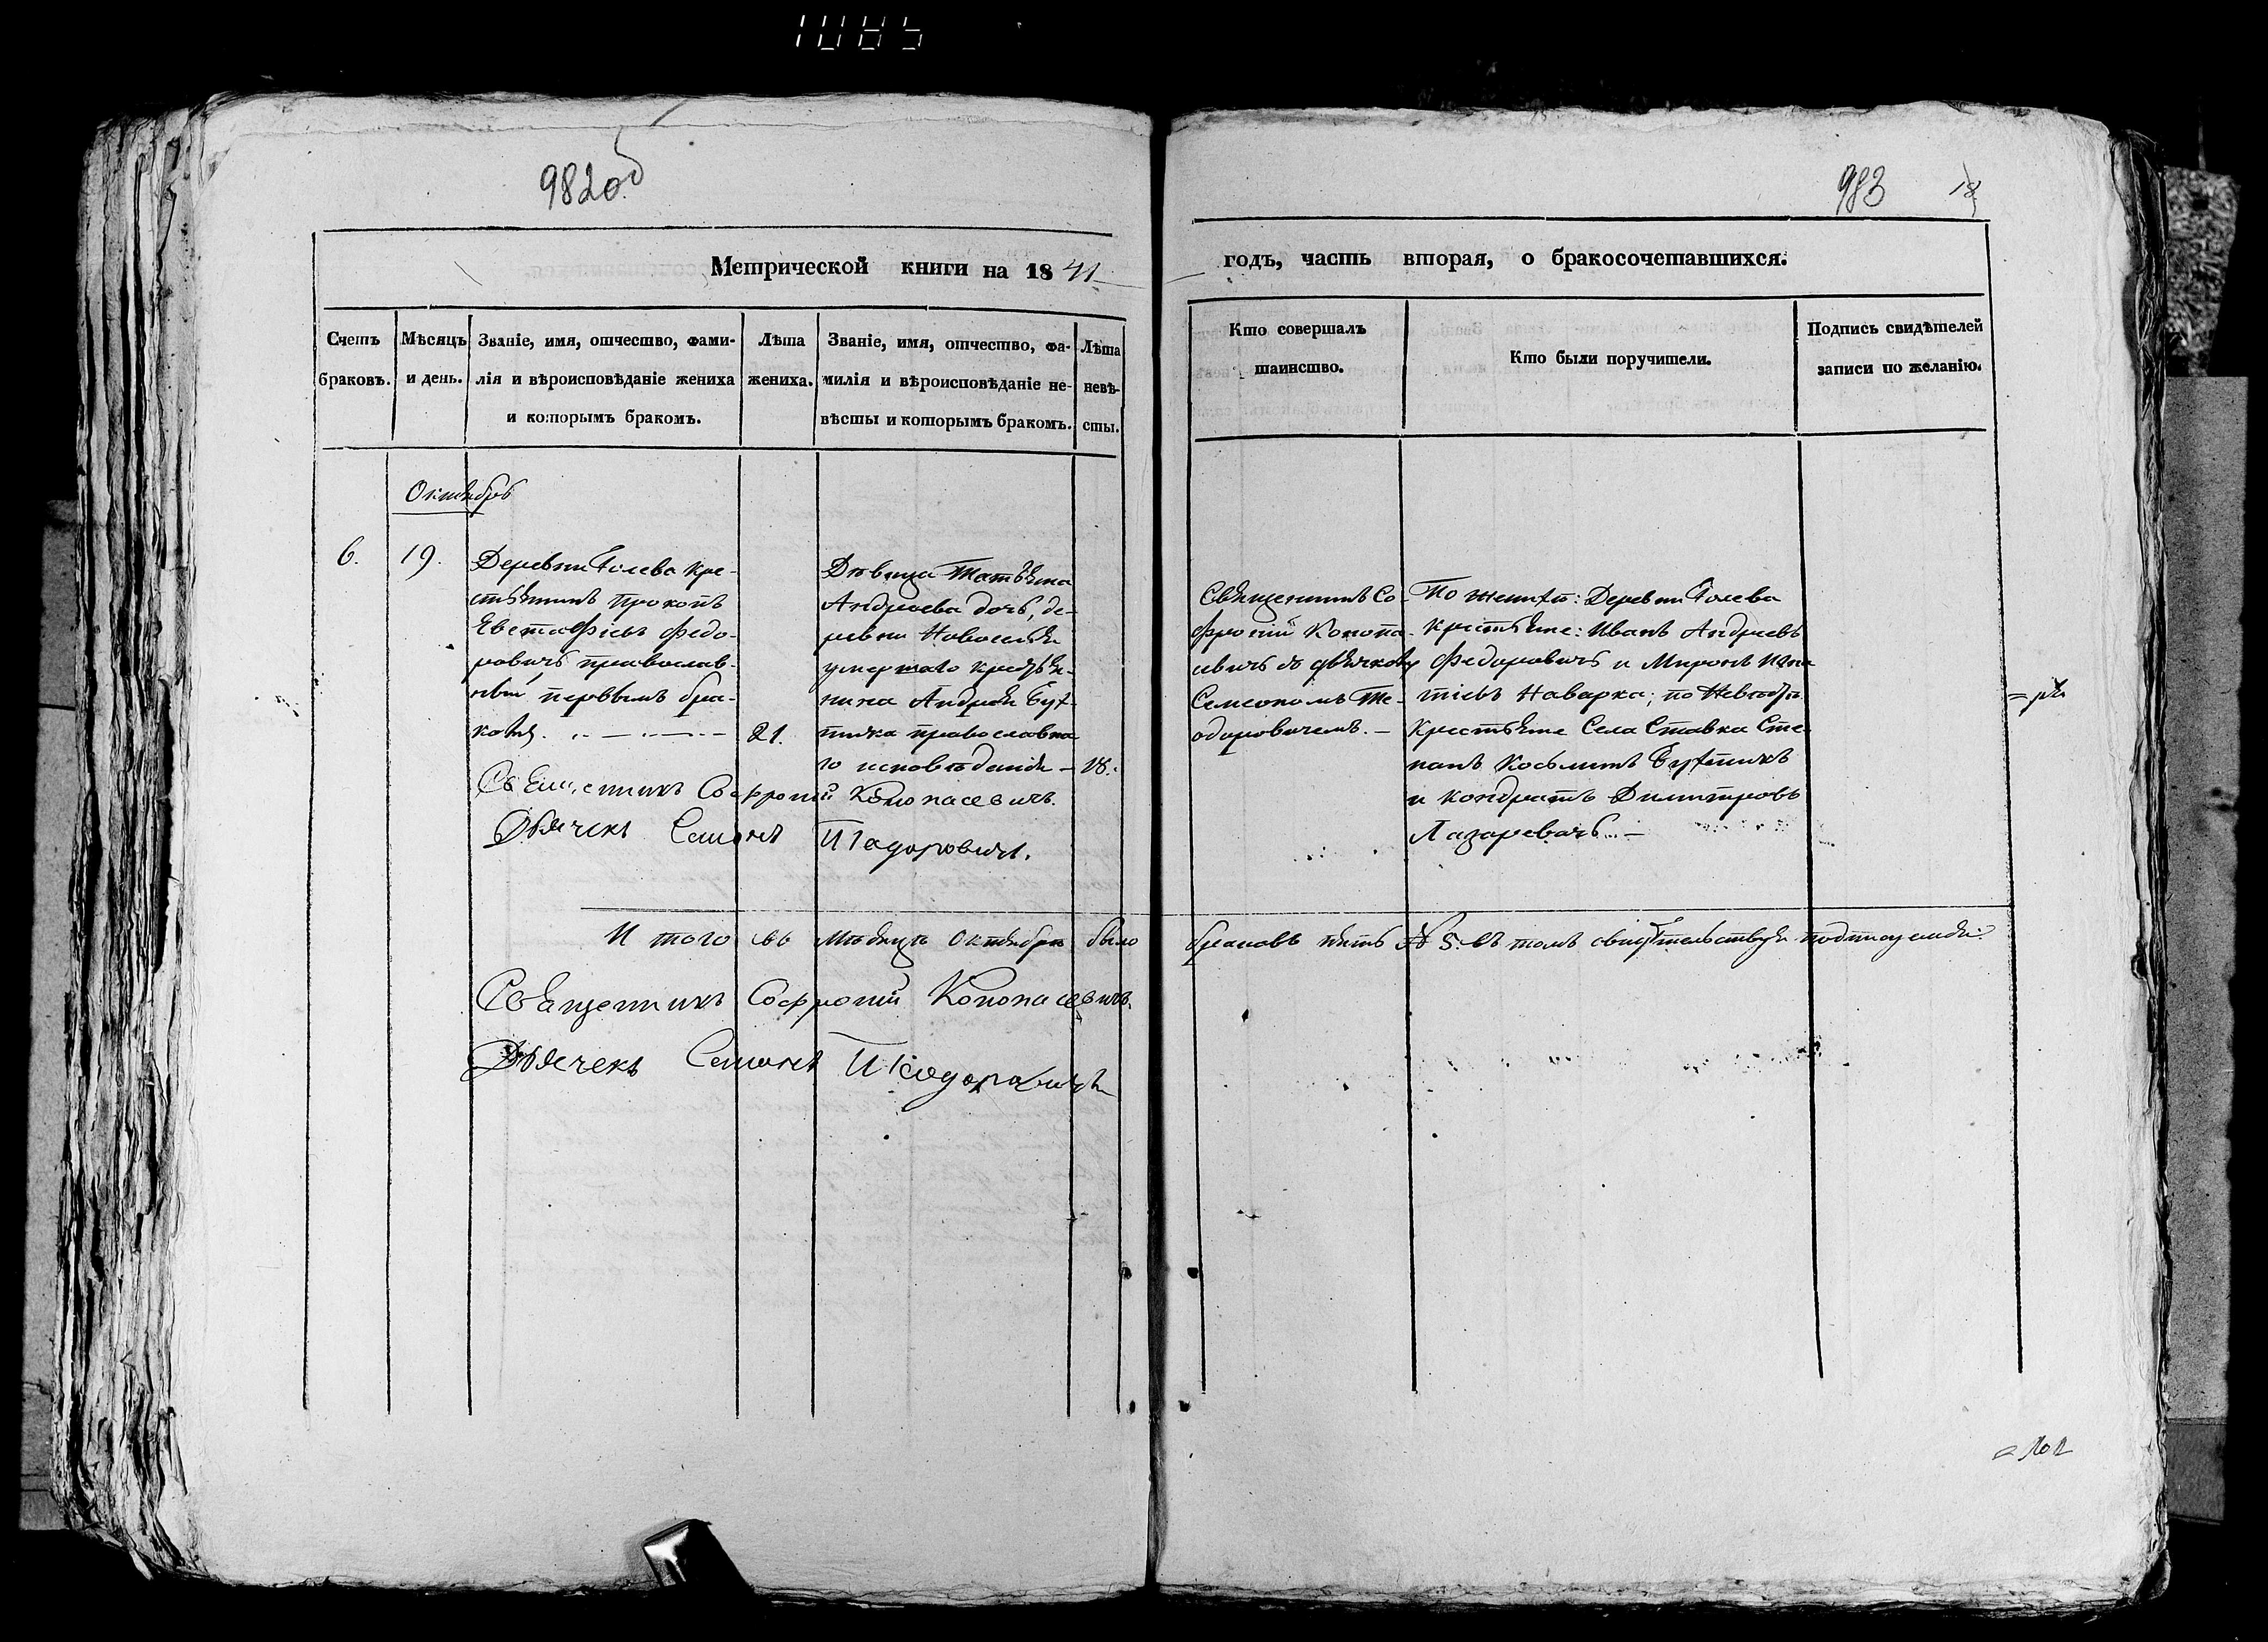 1085
982об
983
Метрической книги на 1841
годъ, часть вторая, о бракосочетавшихся.
Счетъ браковъ.
Мѣсяцъ и день.
Званіе, имя, отчество, фами-
лія и вѣроисповѣданіе жениха
и которымъ бракомъ.
Лѣта
жениха.
Званіе, имя, отчество, фа-
милія и вѣроисповѣданіе не-
вѣсты и которымъ бракомъ.
Лѣта
невѣ-
сты.
Кто совершалъ
таинство.
Кто были поручители.
Подпись свидѣтелей
записи по желанію.
Октябрь
6.
19.
Деревни Голева Кре-
стьянинъ Прокопъ
Евстафіевъ Федо-
ровичъ православ-
ный, первымъ бра-
комъ.
21.
Дѣвица Татьяна
Андреева дочь, де-
ревни Новоселки
умершаго крестьян-
нина Андрея
православна
го исповѣданія
18.
Священникъ Со-
фроній Конопа-
севичъ съ дьячкомъ
Семеономъ Те-
одоровичемъ.
По женихѣ: Деревни Голева
Крестьяне: Иванъ Андреевъ
Федоровичъ и Миронъ
Наварка; по Невѣстѣ
Крестьяне Села Ставка Сте-
панъ Косьминъ
и Кондратъ Димитровъ
Лазаревичъ.
Священникъ Софроній Конопасевичъ.
Дьячекъ Семонъ Теодоровичъ.
Итого въ Мѣсяцѣ Октябрѣ было браковъ пять № 5. въ томъ свидѣтельствуя подписуемся:
Священникъ Софроній Конопасевичъ.
Дьячекъ Семонъ Теодоровичъ